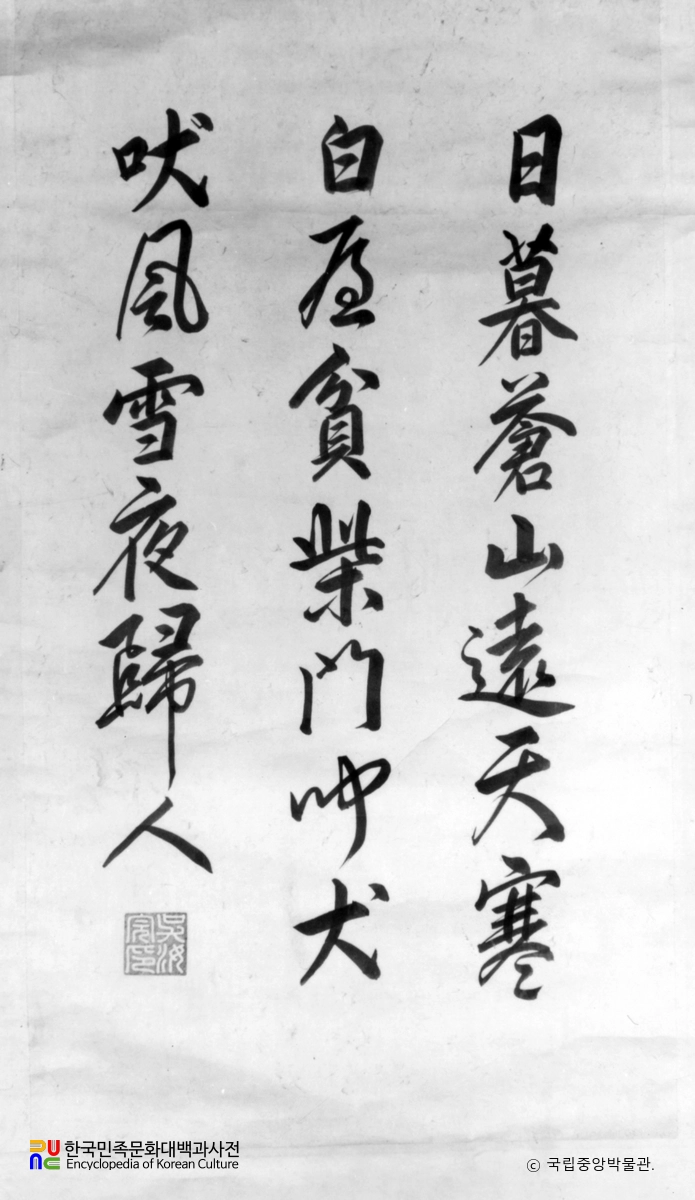 日暮蒼山遠天寒
白屋貧柴門聞犬
吠風雪夜歸人
吳汝完印
한국민족문화대백과사전
Encyclopedia of Korean Culture
© 국립중앙박물관.